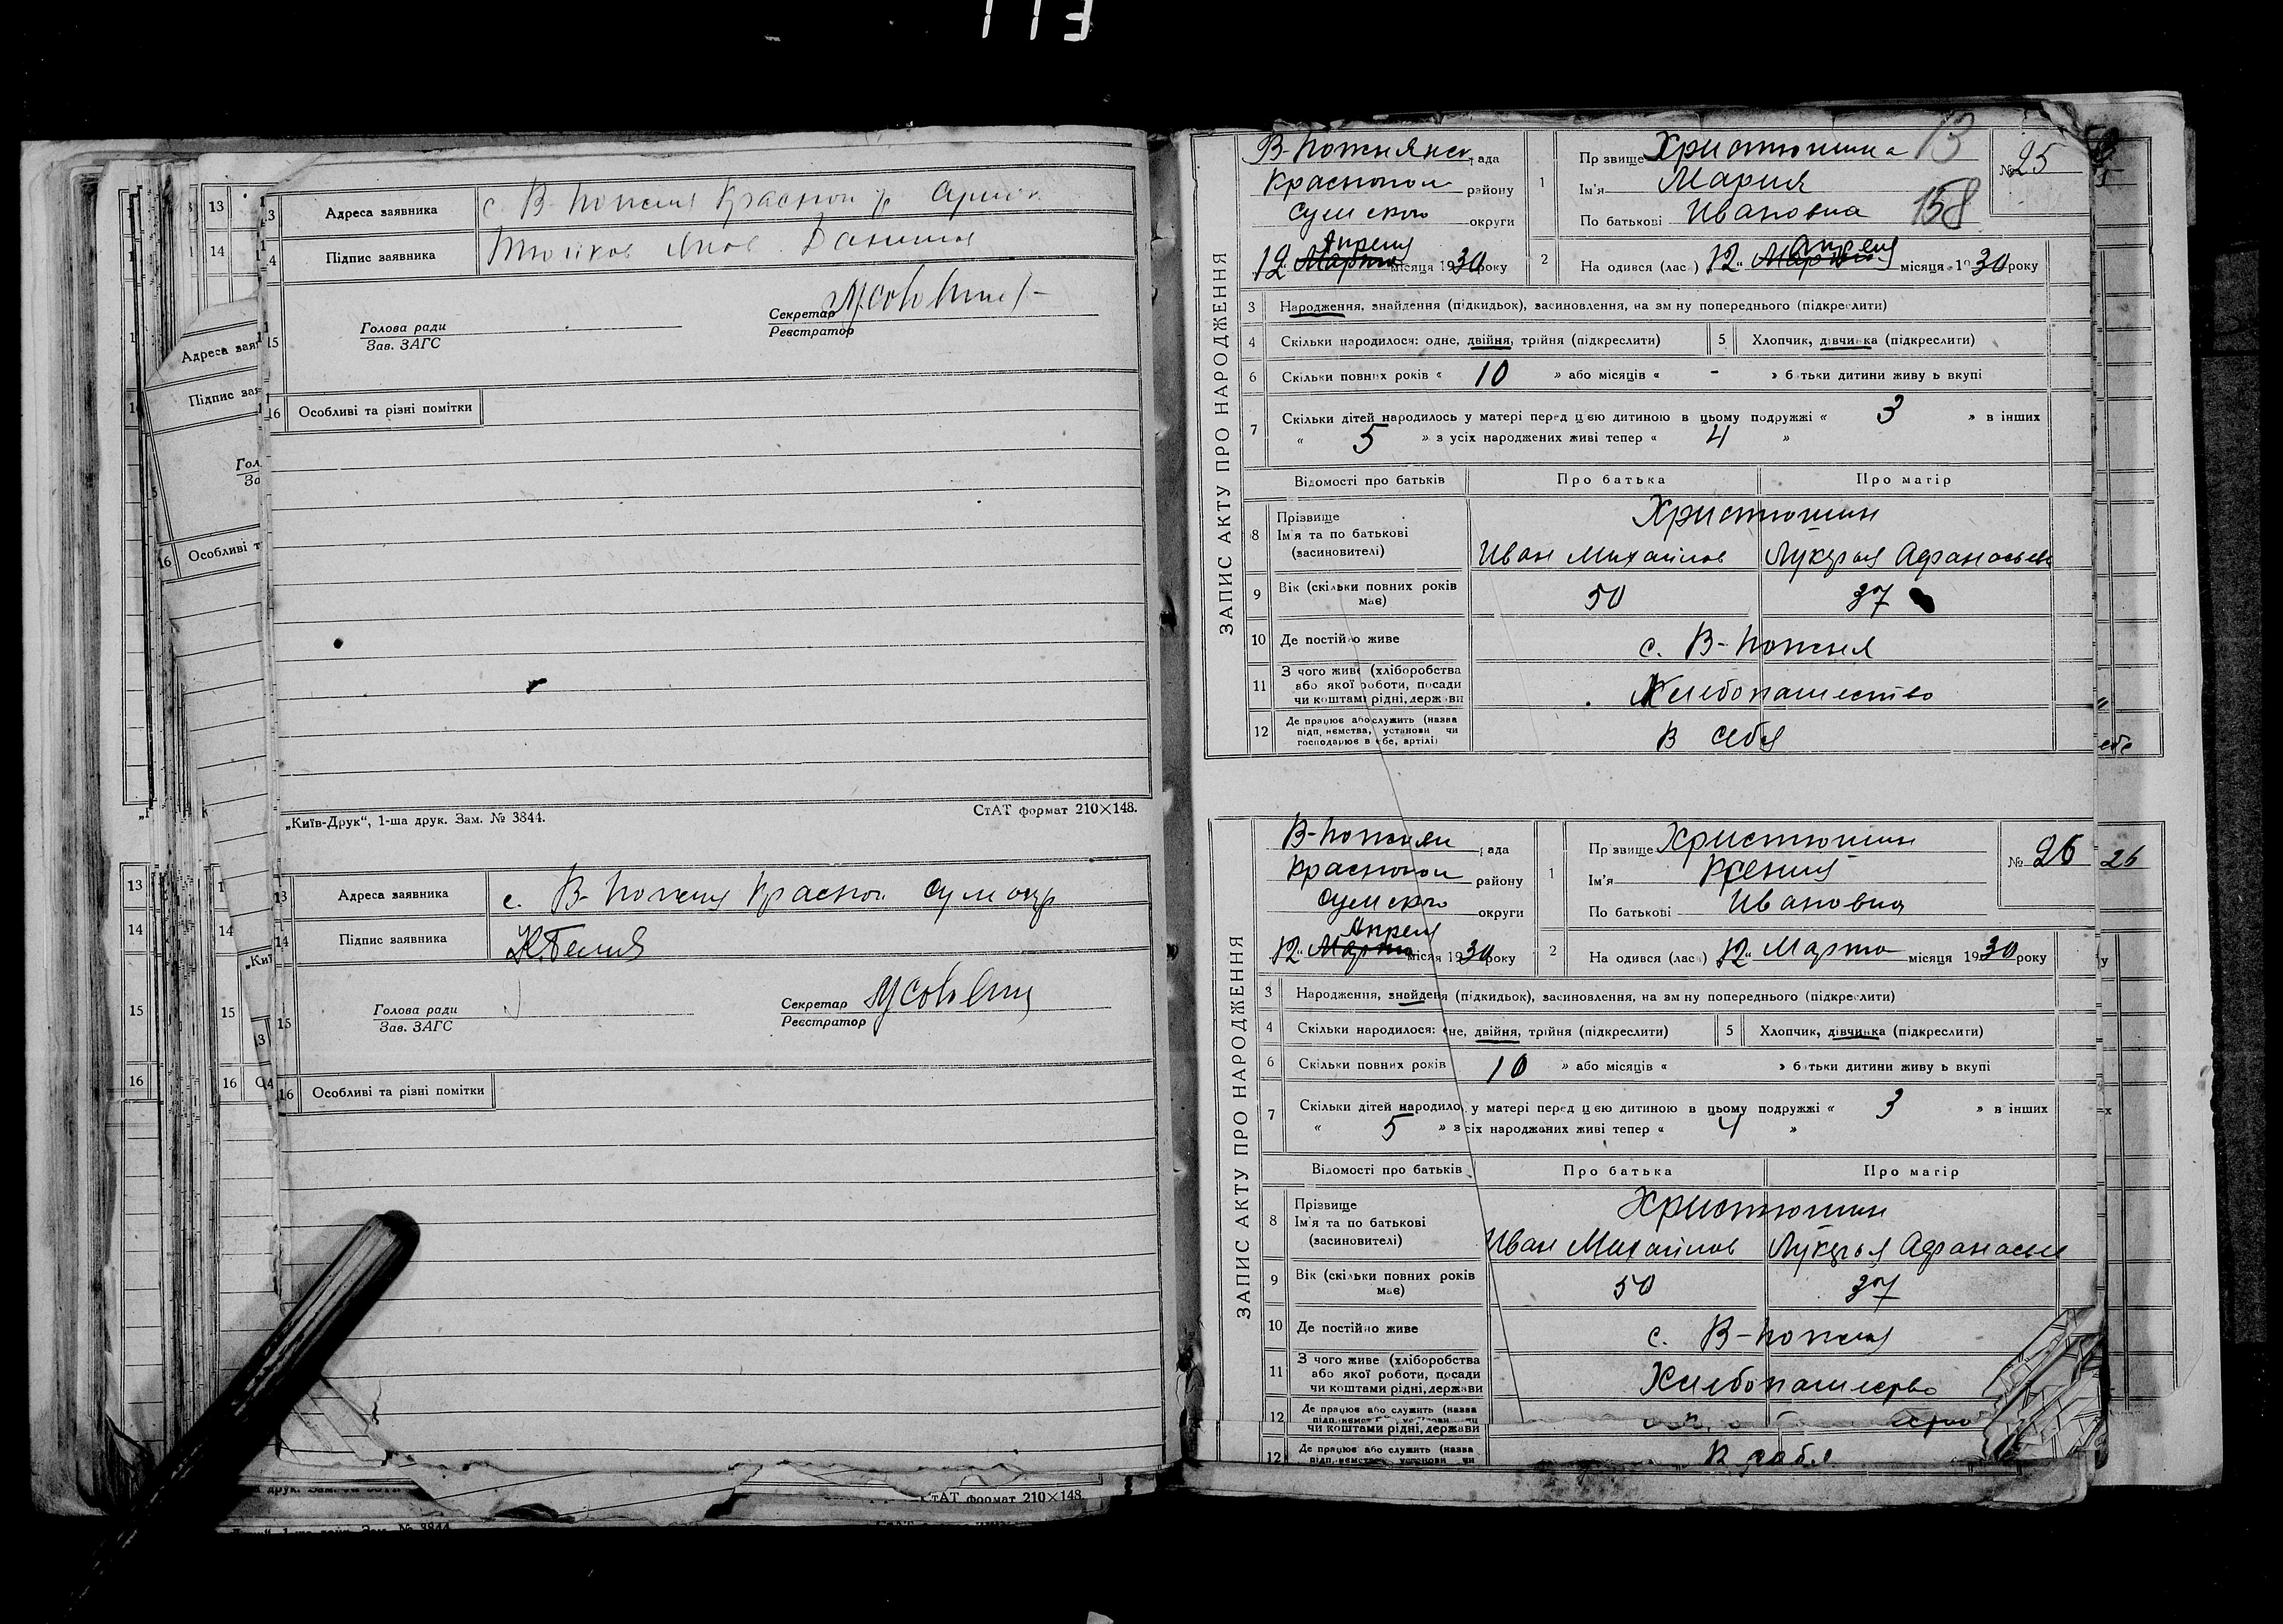 113
13 Адреса заявника с. В-Пожня Краснои р
14 Підпис заявника
Голова ради
Зав. ЗАГС
Секретар
Реєстратор
15
16 Особливі та різні помітки
„Київ-Друк“, 1-ша друк. Зам. № 3844.
СтАТ формат 210×148.
13 Адреса заявника с. В-Пожня Краснои
14 Підпис заявника
Голова ради
Зав. ЗАГС
Секретар
Реєстратор
15
16 Особливі та різні помітки
СтАТ формат 210×148.
ЗАПИС АКТУ ПРО НАРОДЖЕННЯ
В-Пожнянск рада
Краснопол району
Сумского округи
12 Апреля Марта місяця 1930 року
1 Прізвище Христюшина 13
Ім'я Мария
По батькові Ивановна 158
№ 25
2 Народився (лась) 12 Апреля Марта місяця 1930 року
3 Народження, знайдення (підкидьок), засиновлення, на зміну попереднього (підкреслити)
4 Скільки народилося: одне, двійня, трійня (підкреслити) 5 Хлопчик, дівчинка (підкреслити)
6 Скільки повних років « 10 » або місяців « - » батьки дитини живуть вкупі
7 Скільки дітей народилось у матері перед цією дитиною в цьому подружжі « 3 » в інших
« 5 » з усіх народжених живі тепер « 4 »
Відомості про батьків Про батька Про матір
8 Прізвище
Ім'я та по батькові
(засиновителі)
Христюшин
Иван Михайлов Лукерья Афанасьев
9 Вік (скільки повних років має) 50 37
10 Де постійно живе с. В-Пожня
11 З чого живе (хліборобства
або якої роботи, посади
чи коштами рідні, держави
Хлебопашество
12 Де працює або служить (назва
підприємства, установи чи
господарює в себе, артілі)
В себя
ЗАПИС АКТУ ПРО НАРОДЖЕННЯ
В-Пожнян рада
Краснопол району
Сумского округи
12 Апреля Марта місяця 1930 року
1 Прізвище Христюшин
Ім'я Ксения
По батькові Ивановна
№ 26
26
2 Народився (лась) 12 Марта місяця 1930 року
3 Народження, знайдення (підкидьок), засиновлення, на зміну попереднього (підкреслити)
4 Скільки народилося: одне, двійня, трійня (підкреслити) 5 Хлопчик, дівчинка (підкреслити)
6 Скільки повних років 10 » або місяців « » батьки дитини живуть вкупі
7 Скільки дітей народилось у матері перед цією дитиною в цьому подружжі « 3 » в інших
« 5 » з усіх народжених живі тепер « 4 »
Відомості про батьків Про батька Про матір
8 Прізвище
Ім'я та по батькові
(засиновителі)
Христюшин
Иван Михайлов Лукерья Афанасьев
9 Вік (скільки повних років має) 50 37
10 Де постійно живе с. В-Пожня
11 З чого живе (хліборобства
або якої роботи, посади
чи коштами рідні, держави
Хлебопашество
12 Де працює або служить (назва
чи коштами рідні, держави
12 Де працює або служить (назва
підприємства, установи чи
В себя